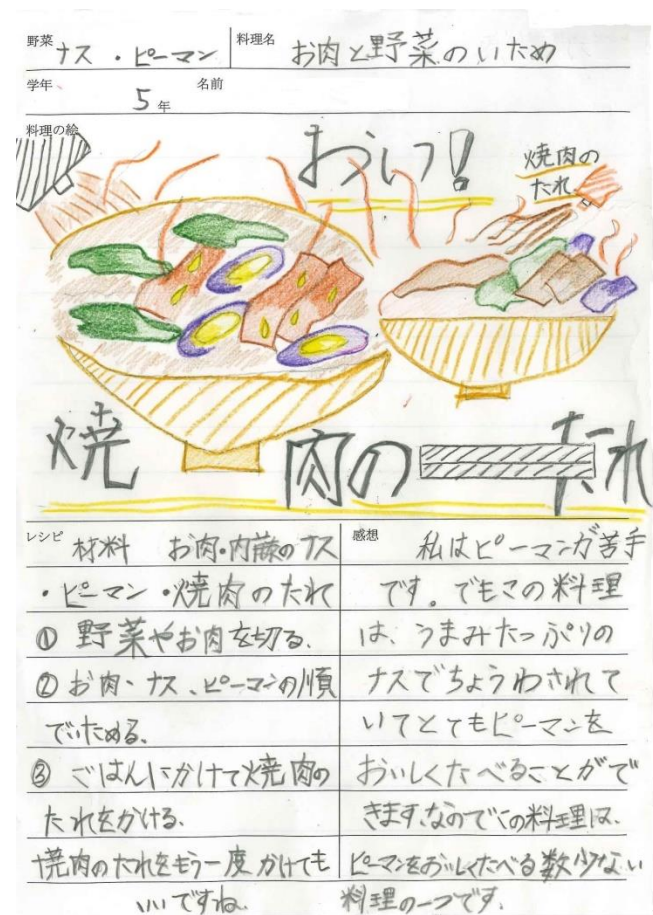 野菜 ナス・ピーマン 料理名 お肉と野菜のいため
学年 5年 名前
料理の絵
おいっ!
焼肉の
たれ
焼肉のたれ
レシピ 材料 お肉・内藤のナス
・ピーマン・焼肉のたれ
① 野菜やお肉を切る。
② お肉、ナス、ピーマンの順
でいためる。
③ ごはんにかけて焼肉の
たれをかける。
焼肉のたれをもう一度かけても
いいですね。
感想 私はピーマンが苦手
です。でもこの料理
は、うまみたっぷりの
ナスでちょうわされて
いてとてもピーマンを
おいしくたべることがで
きます。なのでこの料理は、
ピーマンをおいしくたべる数少ない
料理の一つです。